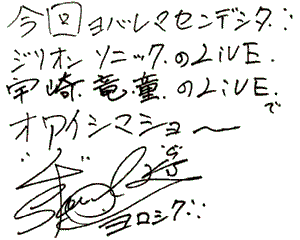 今回ヨバレマセンデシタ∵
ジリオン ソニック のLiVE.
宇崎 竜童 のLiVE.で
オアイシマショ〜
ヨロシク∵